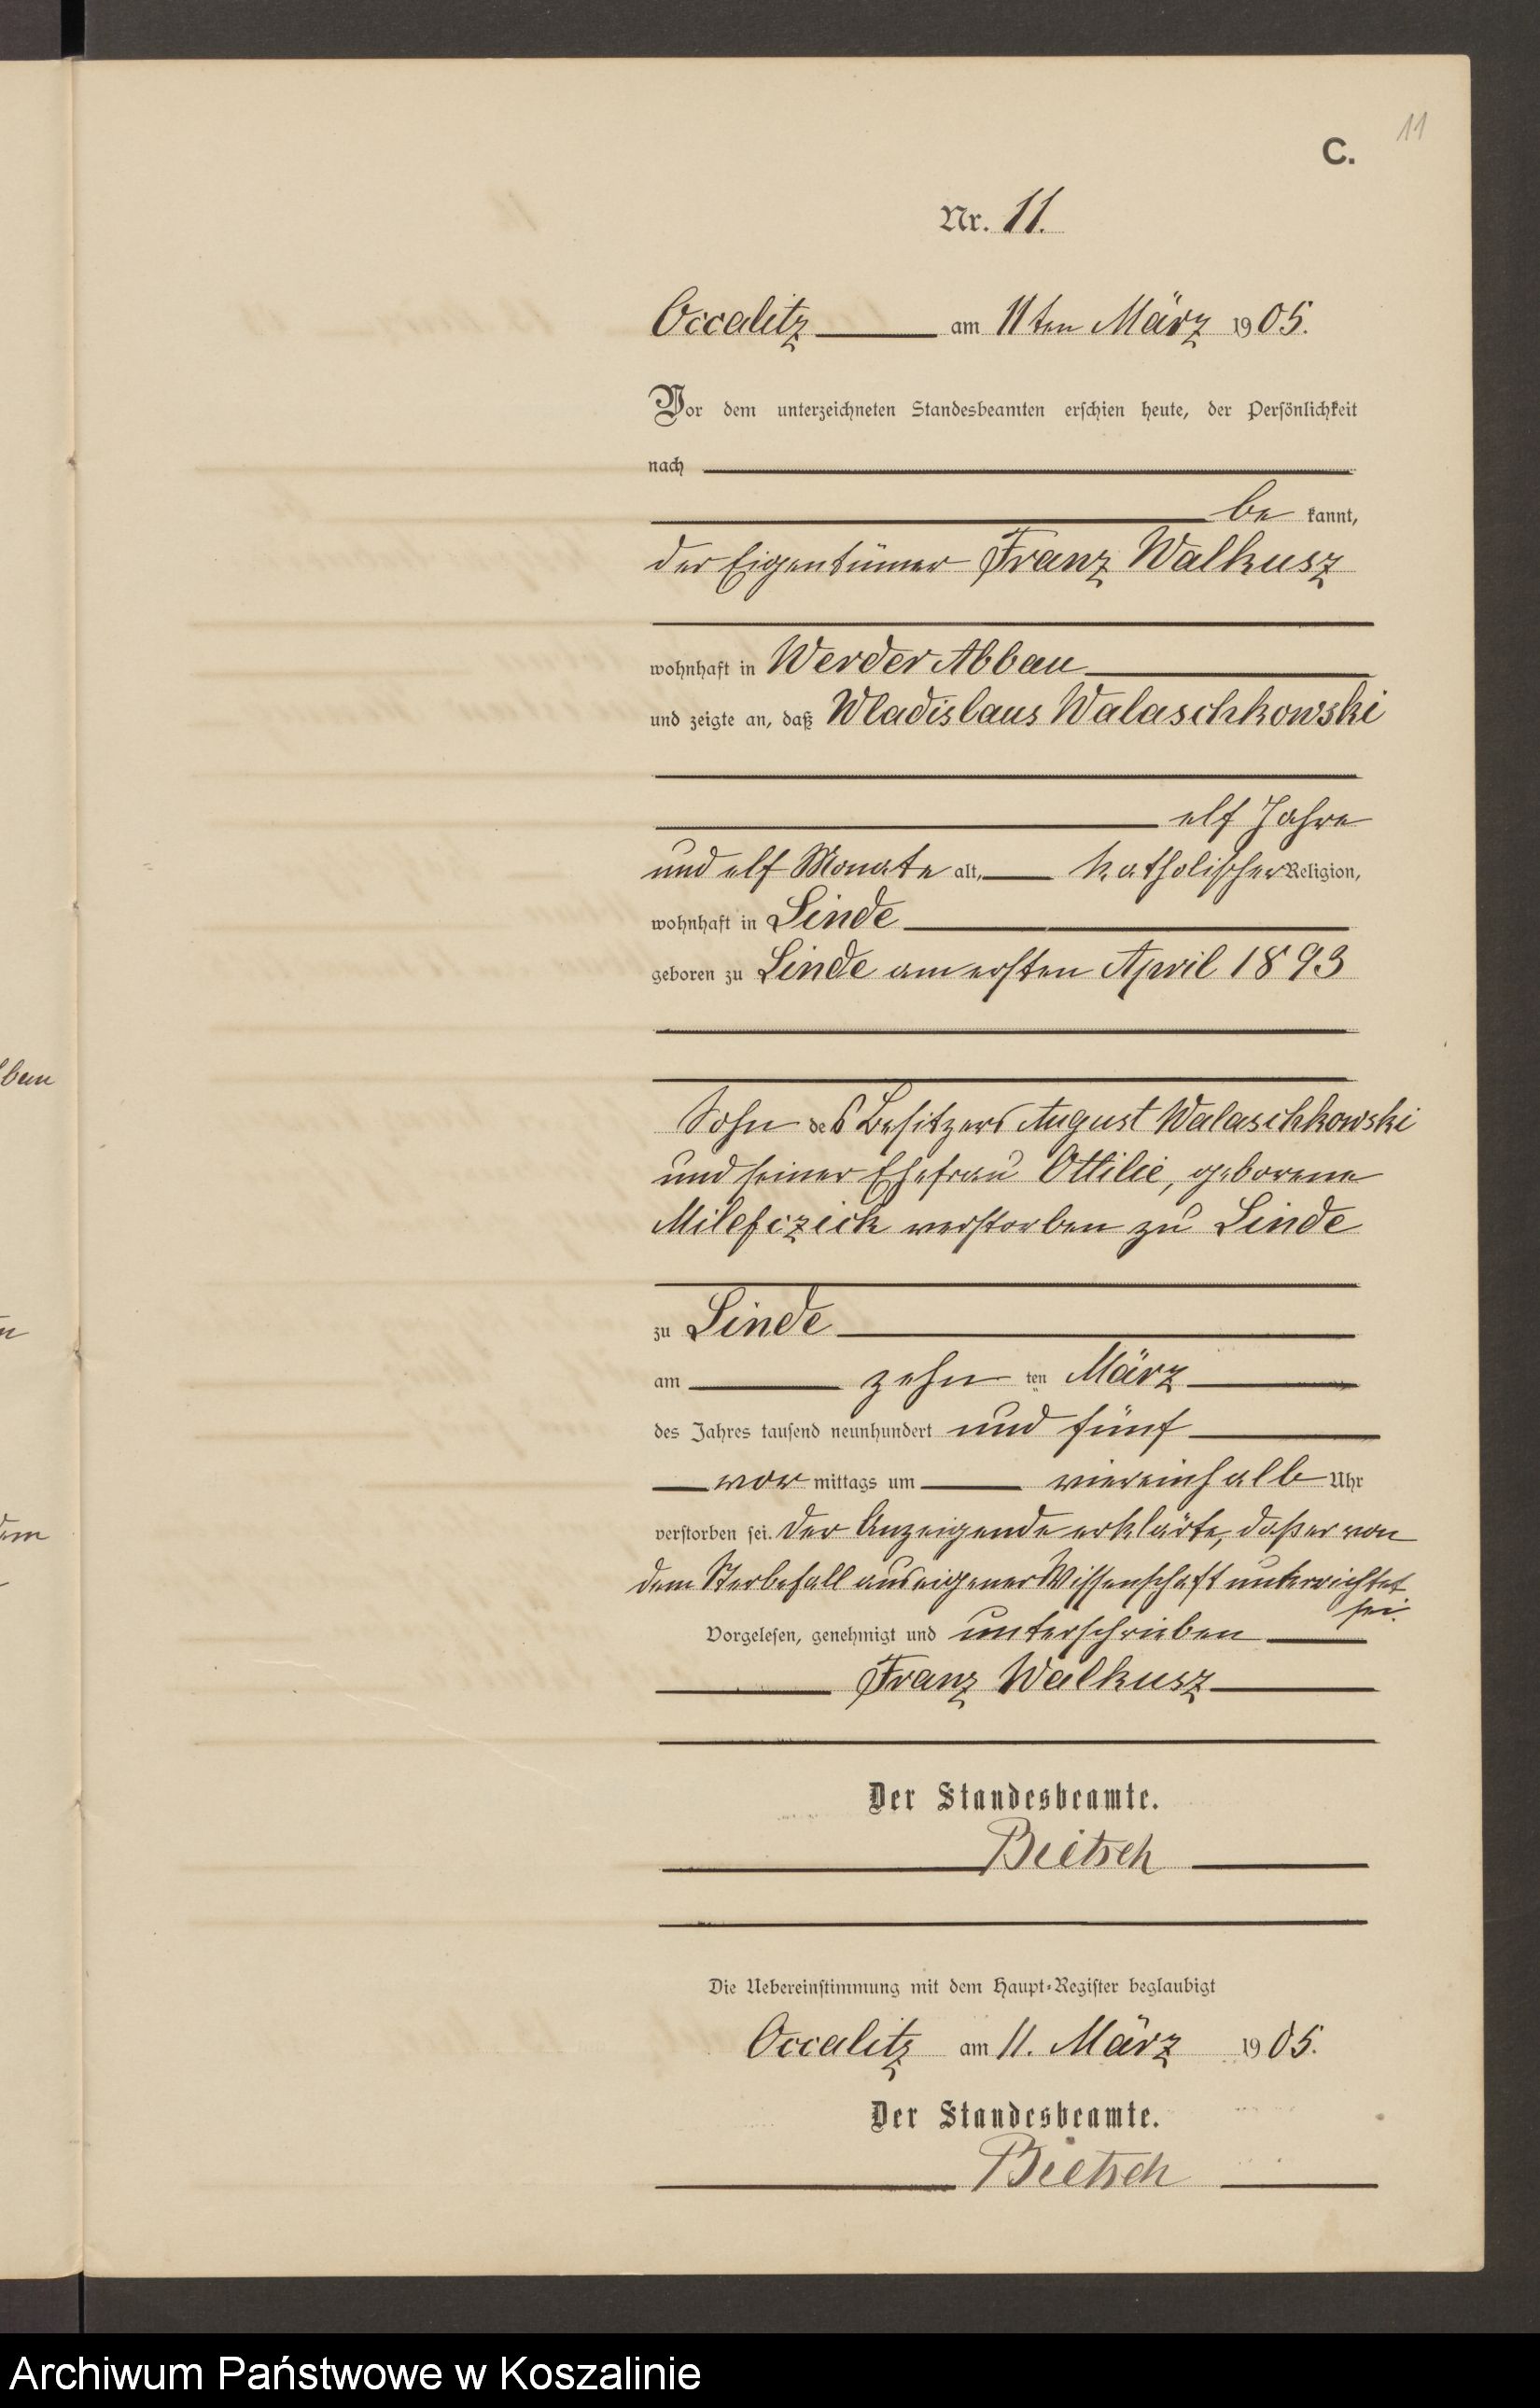 11
C.
Nr. 11.
Occalitz am 11ten März 1905.
Vor dem unterzeichneten Standesbeamten erschien heute, der Persönlichkeit
nach
be kannt,
der Eigentümer Franz Walkusz
wohnhaft in Werder Abbau
und zeigte an, daß Wladislaus Walaschkowski
elf Jahre
und elf Monate alt, katholischer Religion,
wohnhaft in Linde
geboren zu Linde am ersten April 1893
Sohn des Besitzers August Walaschkowski
und seiner Ehefrau Ottilie, geborene
verstorben zu Linde
zu Linde
am zehn ten März
des Jahres tausend neunhundert und fünf
vor mittags um viereinhalb Uhr
verstorben sei. Der Anzeigende erklärte, daß er von
dem Sterbefall aus eigener Wissenschaft unterrichtet
sei.
Vorgelesen, genehmigt und unterschrieben
Franz Walkusz
Der Standesbeamte.
Bietsch
Die Uebereinstimmung mit dem Haupt-Register beglaubigt
Occalitz am 11. März 1905.
Der Standesbeamte.
Bietsch
Archiwum Państwowe w Koszalinie